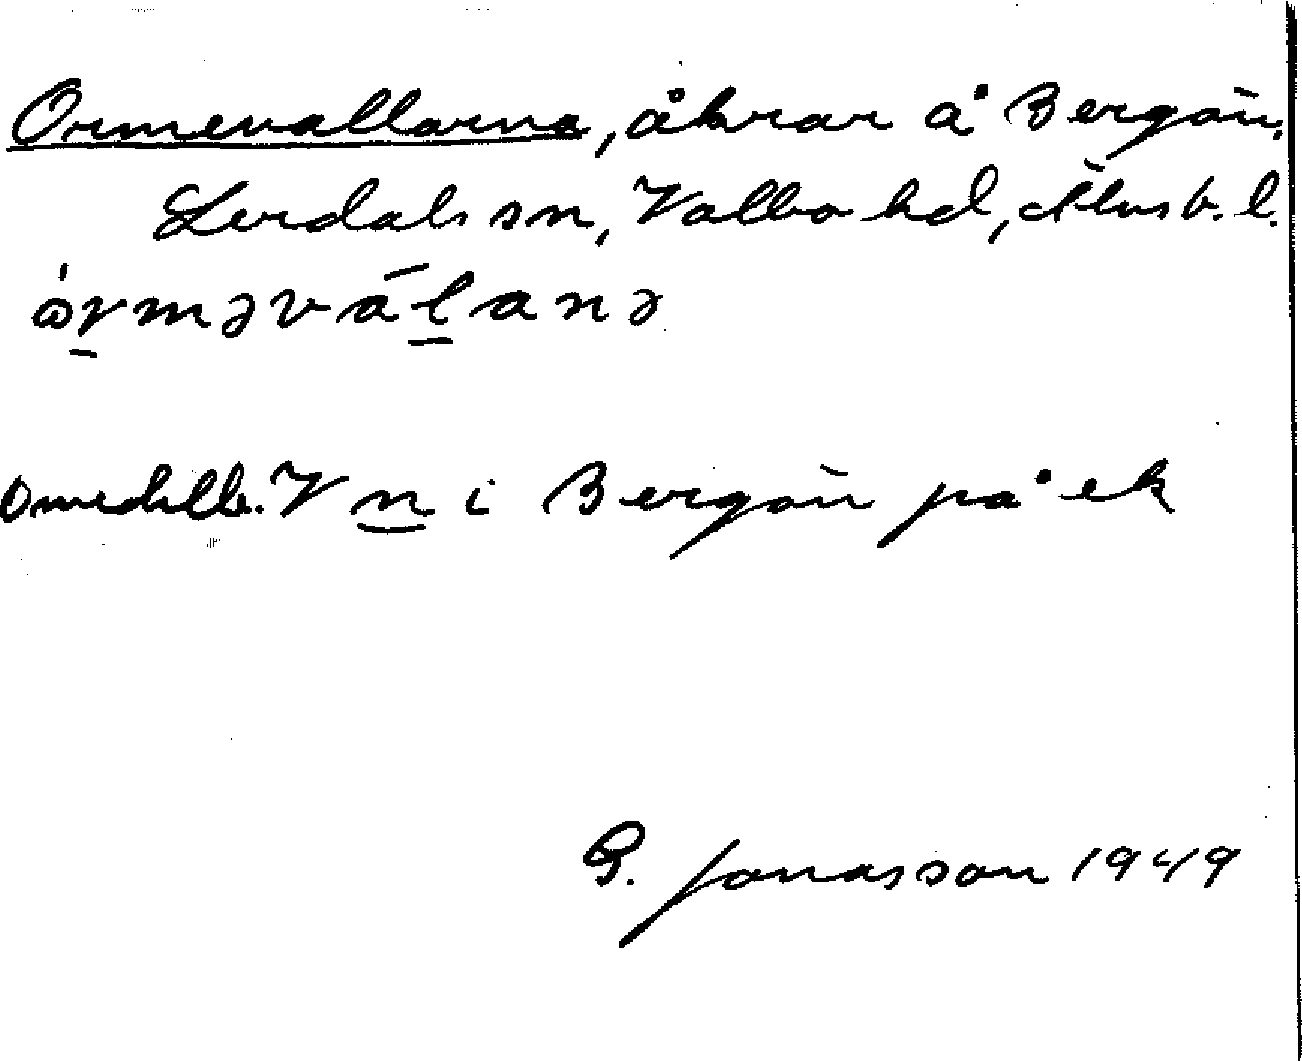 Ormevallarna, åkrar å Bergan,
Lerdals sn, Valbo hd, Älvsb. l.
ò̀rməválanə
omedelb. V n i Bergan på ek
G. Jonasson 1949